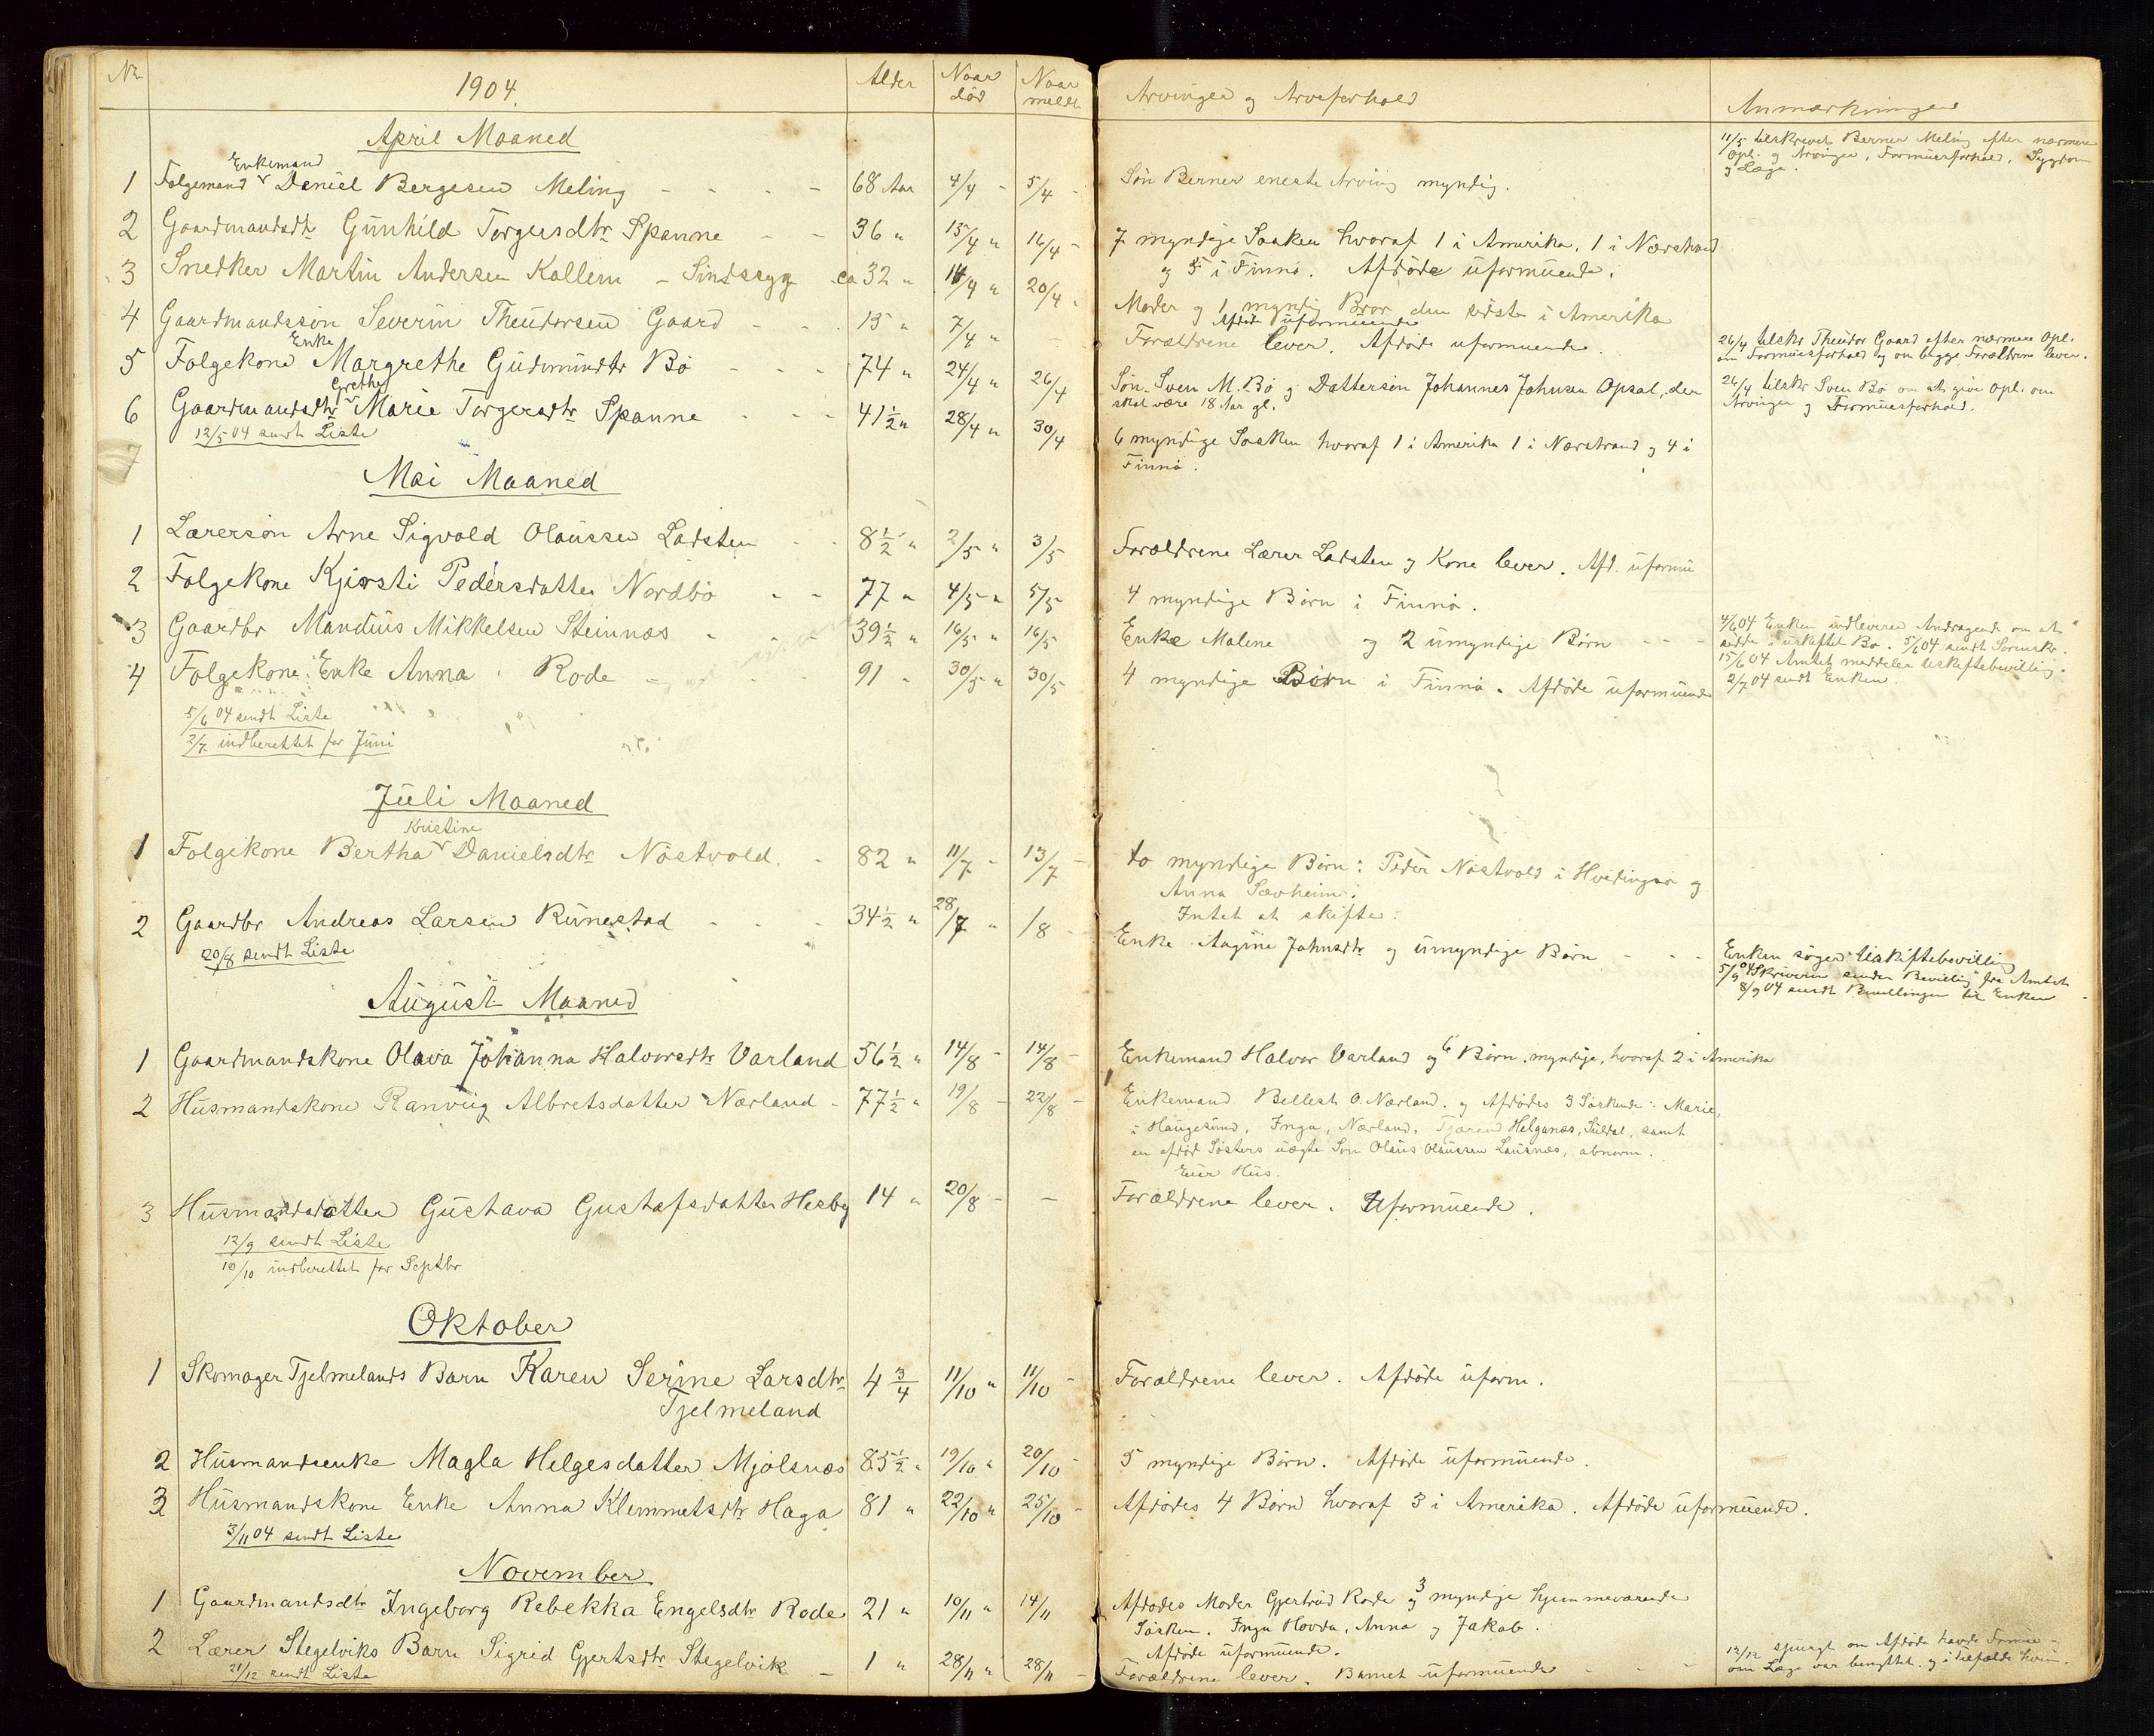 No 1904. Alder Naar død Naar meldt Arvinger og Arveforhold Anmærkninger
April Maaned
11/5 tilskrevet Berner Meling efter nærmere
Opl. og Arvinger, Formuesforhold, Sygdom
og Læge.
Enkemand
1 Følgemand Daniel Bergesen Meling - - - - 68 Aar 4/4 - 5/4 - Søn Berner eneste Arving myndig.
2 Gaardmandsdtr Gunhild Torgersdtr Spanne - - 36 " 15/4 " 16/4 - 7 myndige Søsken hvoraf 1 i Amerika, 1 i Nærstrand
og 5 i Finnø. Afdøde uformuende.
3 Snedker Martin Andersen Kallem - Sindssyg ca 32 " 14/4 " 20/4 " Moder og 1 myndig Bror den sidste i Amerika
Afdøde uformuende
4 Gaardmandssøn Severin Theudorsen Gaard - - . 15 " 7/4 " - Forældrene lever. Afdøde uformuende. 26/4 tilskr Theudor Gaard efter nærmere Opl.
om Formuesforhold og om begge Forældrene lever.
Enke
5 Følgekone Margrethe Gudmundtr Bø - - - 74 " 24/4 " 26/4 Søn Sven M. Bø og Dattersøn Johannes Johnsen Opsal, der
skal være 18 Aar gl.
26/4 tilskr Sven Bø om at give Opl. om
Arvinger og Formuesforhold.
Grethe
6 Gaardmandsdtr Marie Torgersdtr Spanne - - - 41½ " 28/4 " 30/4 6 myndige Søsken hvoraf 1 i Amerika 1 i Nærstrand og 4 i
Finnø.
12/5 04 sendt Liste
7
Mai Maaned
1 Lærersøn Arne Sigvald Olaussen Ladsten - - 8½ " 2/5 " 3/5 Forældrene Lærer Ladsten og Kone lever. Afd. uformu
2 Følgekone Kjirsti Pedersdatter Nordbø - - 77 " 4/5 " 5/5 4 myndige Børn i Finnø.
3 Gaardbr Mandius Mikkelsen Steinnæs - - - 39½ " 16/5 " 16/5 Enke Malene og 2 umyndige Børn - - - 4/6 04 Enken indleverer Andragende om at
sidde i uskiftet Bo. 5/6 04 sendt Sorenskr.
15/6 04 Amtet meddeler Uskiftebevilling.
2/7 04 sendt Enken.
4 Følgekone Enke Anna Rode - - - 91 " 30/5 " 30/5 4 myndige Børn i Finnø. Afdøde uformuende
5/6 04 sendt Liste
2/7 indberettet for Juni
Juli Maaned
Kristine
1 Følgekone Bertha Danielsdtr Nøstvold. - 82 " 11/7 - 13/7 - to myndige Børn: Peder Nøstvold i Hvidingsø og
Anna Sævheim.
Intet at skifte.
2 Gaardbr Andreas Larsen Runestad - - - 34½ " 28/7 " 1/8 - Enke Aagine Johnsdtr og umyndige Børn - - -
20/8 sendt Liste
Enken søger Uskiftebevilling
5/9 04 Skriveren sender Bevilling fra Amtet
8/9 04 sendt Bevillingen til Enken
August Maaned
1 Gaardmandskone Olava Johanna Halvorsdtr Varland 56½ " 14/8 - 14/8 - Enkemand Halvor Varland og 6 Børn, myndige, hvoraf 2 i Amerika
2 Husmandskone Ranveig Albretsdatter Nærland - 77½ " 19/8 - 22/8 - Enkemand Bellest O. Nærland. og Afdødes 3 Søskende: Marie,
i Haugesund, Inga, Nærland, Helganæs, Suldal, samt
en afdød Søsters uægte Søn Olaus Olaussen Lausnæs, abnorm.
Eier Hus.
3 Husmandsdatter Gustava Gustafsdatter Hesby 14 " 20/8 - - Forældrene lever. Uformuende.
12/9 sendt Liste
10/10 indberettet for Septbr
Oktober
1 Skomager Tjelmelands Barn Karen Serine Larsdtr 4¾ 11/10 " 11/10 - Forældrene lever. Afdøde uform.
Tjelmeland
2 Husmandsenke Magla Helgesdatter Mjølsnæs 85½ " 19/10 " 20/10 - 5 myndige Børn. Afdøde uformuende.
3 Husmandskone Enke Anna Klemmetsdtr Haga 81 " 22/10 " 25/10 - Afdødes 4 Børn hvoraf 3 i Amerika. Afdøde uformuende.
3/11 04 sendt Liste
November
1 Gaardmandsdtr Ingeborg Rebekka Engelsdtr Rode 21 " 10/11 " 14/11 Afdødes Moder Gjertrud Rode og 3 myndige hjemmeværende
Søsken. Inga Hovda, Anna og Jakob.
Afdøde uformuende.
2 Lærer Stegelviks Barn Sigrid Gjertsdtr Stegelvik - 1 " 28/11 " 28/11 - Forældrene lever. Barnet uformuende - - -
21/12 sendt Liste
12/12 spurgt om Afdøde havde Formue -
om Læge var benyttet og i Tilfælde hvem.